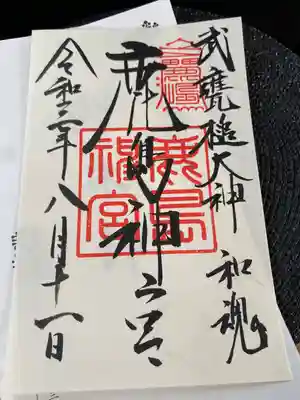 武甕槌大神 和魂
鹿島神宮
鹿島
神宮
令和二年八月十一日